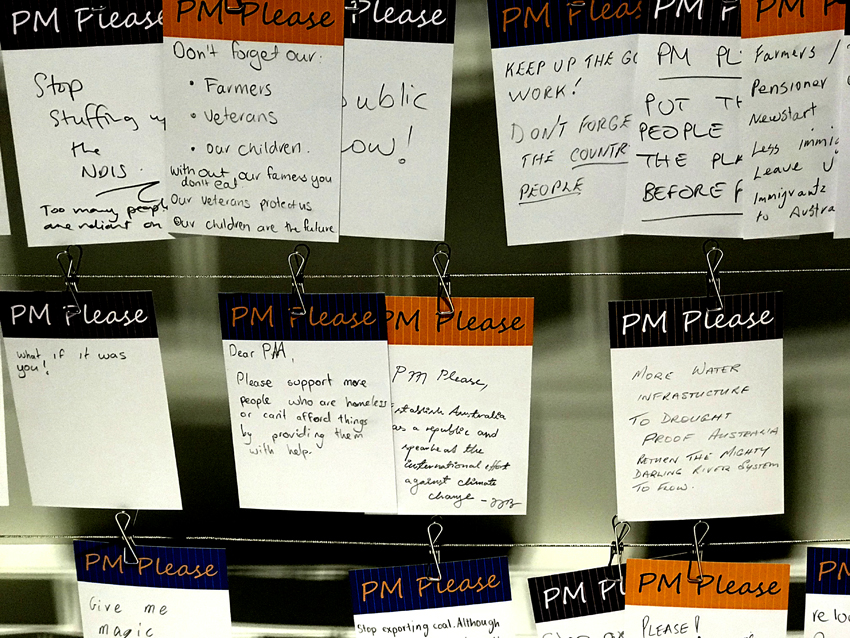 PM Please
Stop
Stuffing
the
NDIS.
Too many people
are reliant on
PM Please
Don't forget our:
• Farmers
• Veterans
• our children.
without our farmers you
don't eat
Our veterans protect us
Our children are the future
Please
public
ow!
PM Pleas
KEEP UP THE GO
WORK!
DON'T FORGE
THE COUNTR
PEOPLE
PM P
PM PL
PUT TH
PEOPLE
THE PLA
BEFORE
PM Please
Farmers /
Pensioner
Newstart
Less immi
Leave U
Immigrants
to Austra
PM Please
What if it was
you!
PM Please
Dear PM,
Please support more
people who are homeless
or can't afford things
by providing them
with help.
PM Please
PM Please,
establish Australia
as a republic and
spearhead the
international effort
against climate
change -
PM Please
MORE WATER
INFRASTUCTURE
TO DROUGHT
PROOF AUSTRALIA
RETURN THE MIGHTY
DARLING RIVER SYSTEM
TO FLOW.
PM Please
Give me
magic
PM Please
Stop exporting coal. Although
PM Pl
PM Please
PLEASE!
PM
re lo